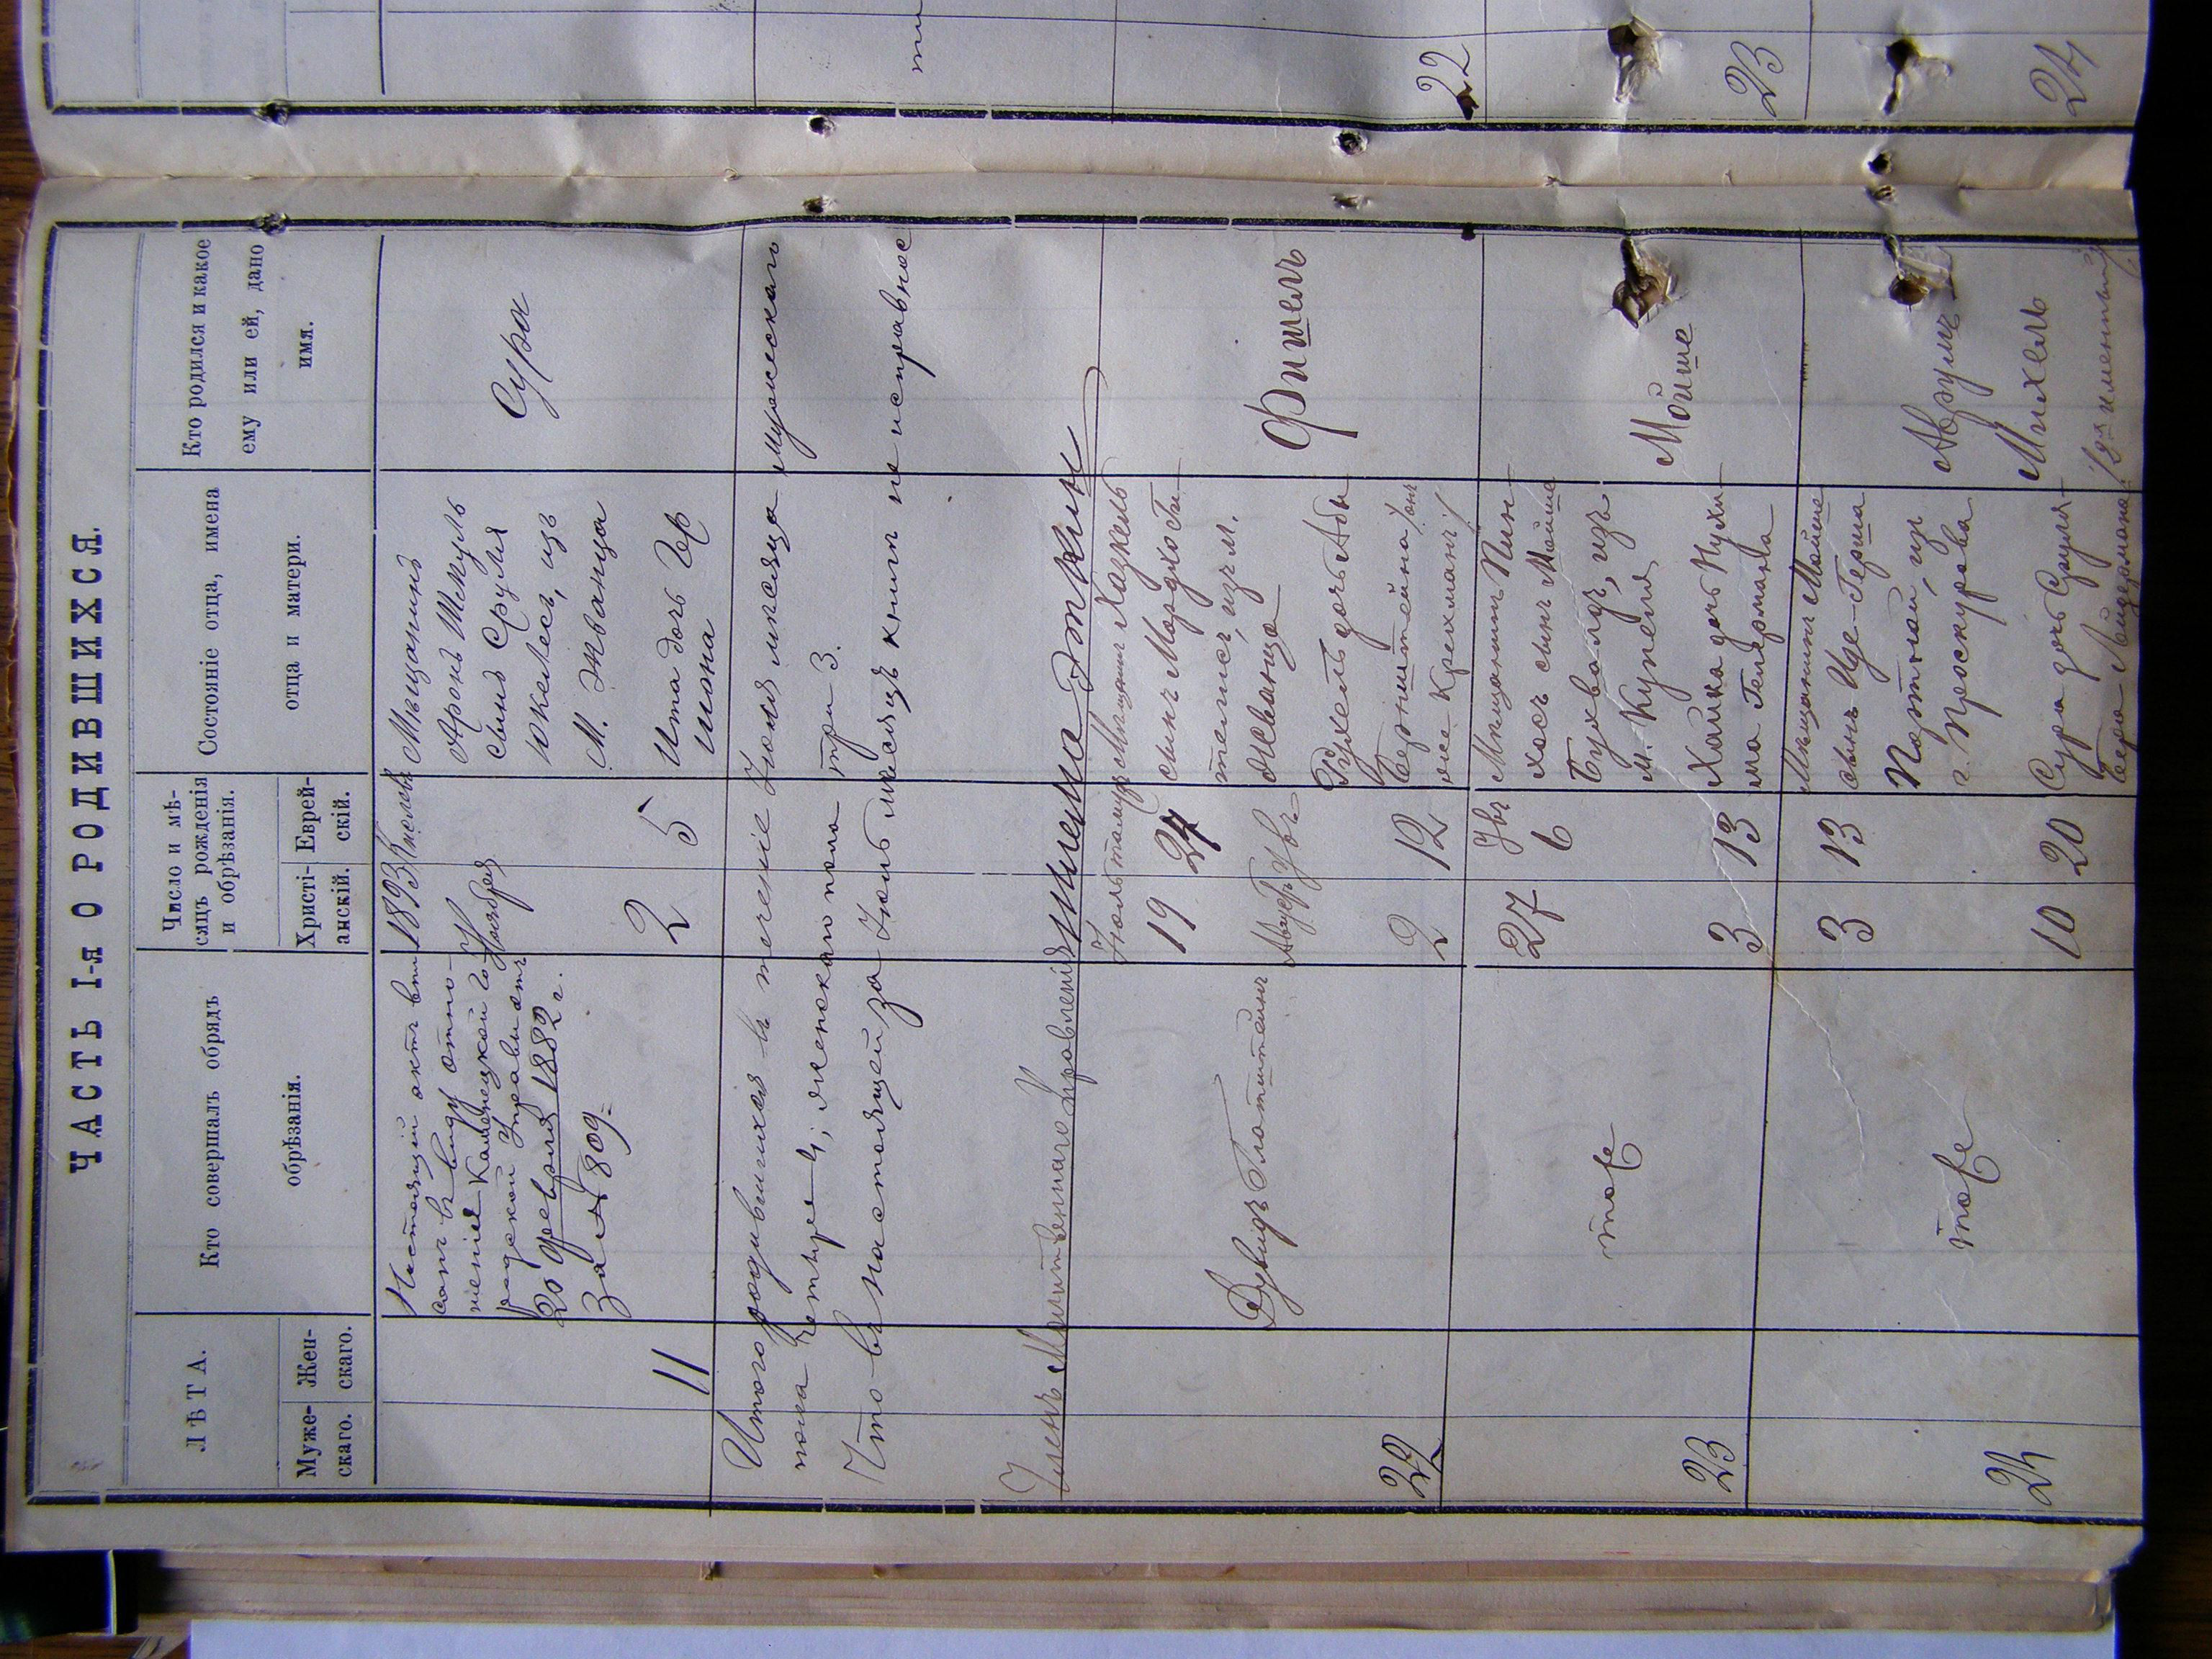 ЧАСТЬ I-я О РОДИВШИХСЯ.
ЛѢТА.
Муже-
скаго.
Жен-
скаго.
Кто совершалъ обрядъ
обрѣзанія.
Число и мѣ-
сяцъ рожденія
и обрѣзанія.
Христі-
анскій.
Еврей-
скій.
Состояніе отца, имена
отца и матери.
Кто родился и какое
ему или ей, дано
имя.
11
Настоящій актъ впи
санъ въ виду отно-
шенія Каменецкой Го
родской Управы отъ
20 февраля 1882 г.
За № 809.
1893
Ноября
2
Кислевъ
5
Мѣщанинъ
Аронъ Шмуль
сынъ Сруля
Юкелесъ, изъ
М. Жванца
Ита дочь Гер
шона
Сура
Итого родившихся въ теченіе Іюня мѣсяца мужескаго
пола четыре 4; женскаго пола три 3.
Что въ настоящей за Іюнь мѣсяцъ книгѣ не исправное
Членъ Молитвеннаго Правленія Шлема Эткин
22
Дувидъ Глатштейнъ
Іюль
19
Августъ
2
тамузъ
24
Увъ
12
Мѣщанинъ Хазкель
сынъ Мордко
изъ м.
Жванца
Рухель дочь Абы
Бернштейна /онъ
же Крехманъ/
Фишель
23
тоже
27
3
Увъ
6
13
Мѣщанинъ Пин-
хасъ сынъ Мойше
Бухвалдъ, изъ
м. Купеля
Хайка дочь Нухи-
ма Гелермана
Мойше
24
тоже
3
10
13
20
Мѣщанинъ Мойше
сынъ Иде-Герша
Портной, изъ
г. Проскурова
Сура дочь Сруля-
Бера
Аврумъ
Михель
/двуименный/
22
23
24